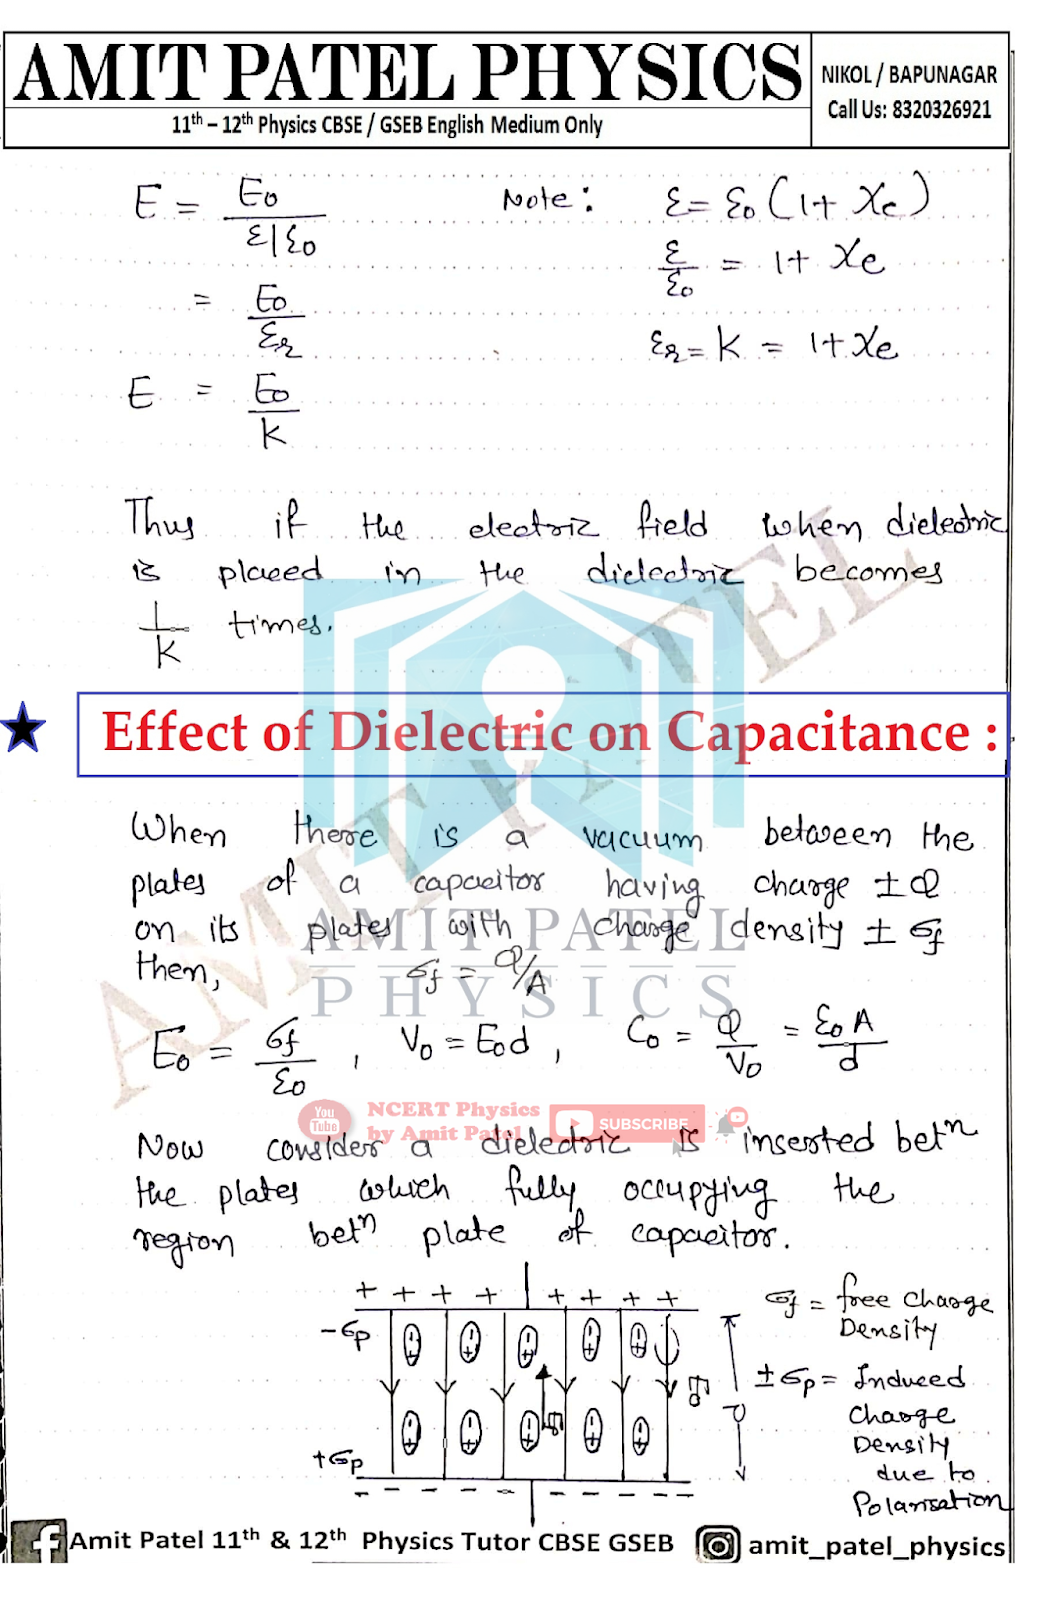 AMIT PATEL PHYSICS
11th – 12th Physics CBSE / GSEB English Medium Only
NIKOL / BAPUNAGAR
Call Us: 8320326921
E = E0 / ε/ε0
= E0 / εr
E = E0 / k
Note: ε = ε0 (1 + χe)
ε/ε0 = 1 + χe
εr = K = 1 + χe
Thus if the electric field when dielectric
is placed in the dielectric becomes
1/k times.
★ Effect of Dielectric on Capacitance :
When there is a vacuum between the
plates of a capacitor having charge ±Q
on its plates with charge density ± σf
then, σf = Q/A
E0 = σf/ε0 , V0 = E0d , C0 = Q/V0 = ε0 A/d
Now consider a dielectric is inserted betn
the plates which fully occupying the
region betn plate of capacitor.
+ + + + + + + +
-σp
+σp
d
σf = free charge
Density
±σp = Induced
charge
Density
due to
Polarisation
AMIT PATEL
AMIT PATEL
PHYSICS
You
Tube
NCERT Physics
by Amit Patel
SUBSCRIBE
Amit Patel 11th & 12th Physics Tutor CBSE GSEB
amit_patel_physics